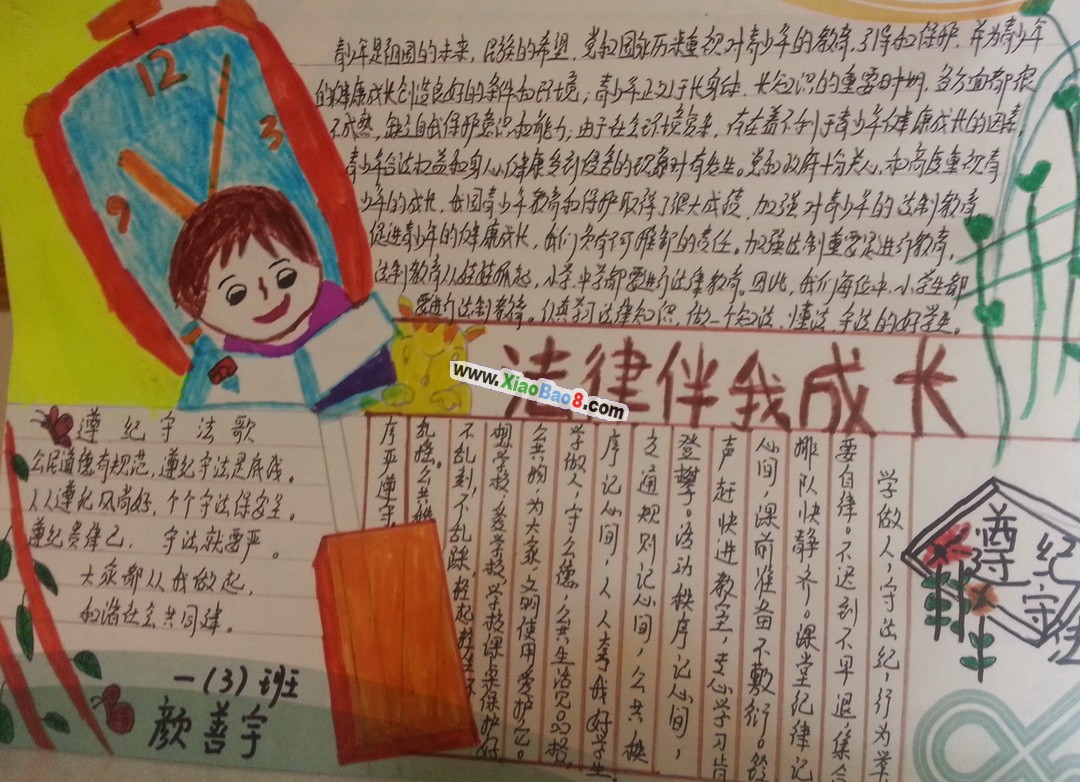 12
3
9
青少年是祖国的未来,民族的希望,党和国家历来重视对青少年的教育,引导和保护,并为青少年
的健康成长创造良好的条件和环境;青少年正处于长身体、长知识的重要时期,各方面都很
不成熟,缺乏自我保护意识和能力;由于社会环境复杂,存在着不利于青少年健康成长的因素,
青少年合法权益和身心健康受到侵害的现象时有发生。党和政府十分关心和高度重视青
少年的成长,我国青少年教育和保护取得了很大成绩,加强对青少年的法制教育
促进青少年的健康成长,我们负有不可推卸的责任。加强法制重要是进行教育,
法制教育从娃娃抓起,小学中学都要进行法律教育。因此,我们每位中、小学生都
要进行法制教育。认真学习法律知识,做一个知法、懂法、守法的好学生。
www.XiaoBao8.com
法律伴我成长
遵纪守法歌
公民道德有规范,遵纪守法是底线。
人人遵纪风尚好,个个守法保安全。
遵纪贵律己,守法就要严。
大家都从我做起,
和谐社会共同建。
一(3)班
颜善宇
学做人,守法纪,行为学
要自律。不迟到不早退集合
排队快静齐。课堂纪律记
心间,课前准备不敷衍。铃
声赶快进教室,专心学习肯
登攀。活动秩序记心间,
交通规则记心间,公共秩
序记心间,人人夸我好学生。
学做人,守公德,公共生活见品格。
公共物,为大家,文明使用爱护它。
想学校,爱学校,学校课桌保护好
不乱刻,不乱踩
乱摇。公共秩
序严遵守
遵纪
守法